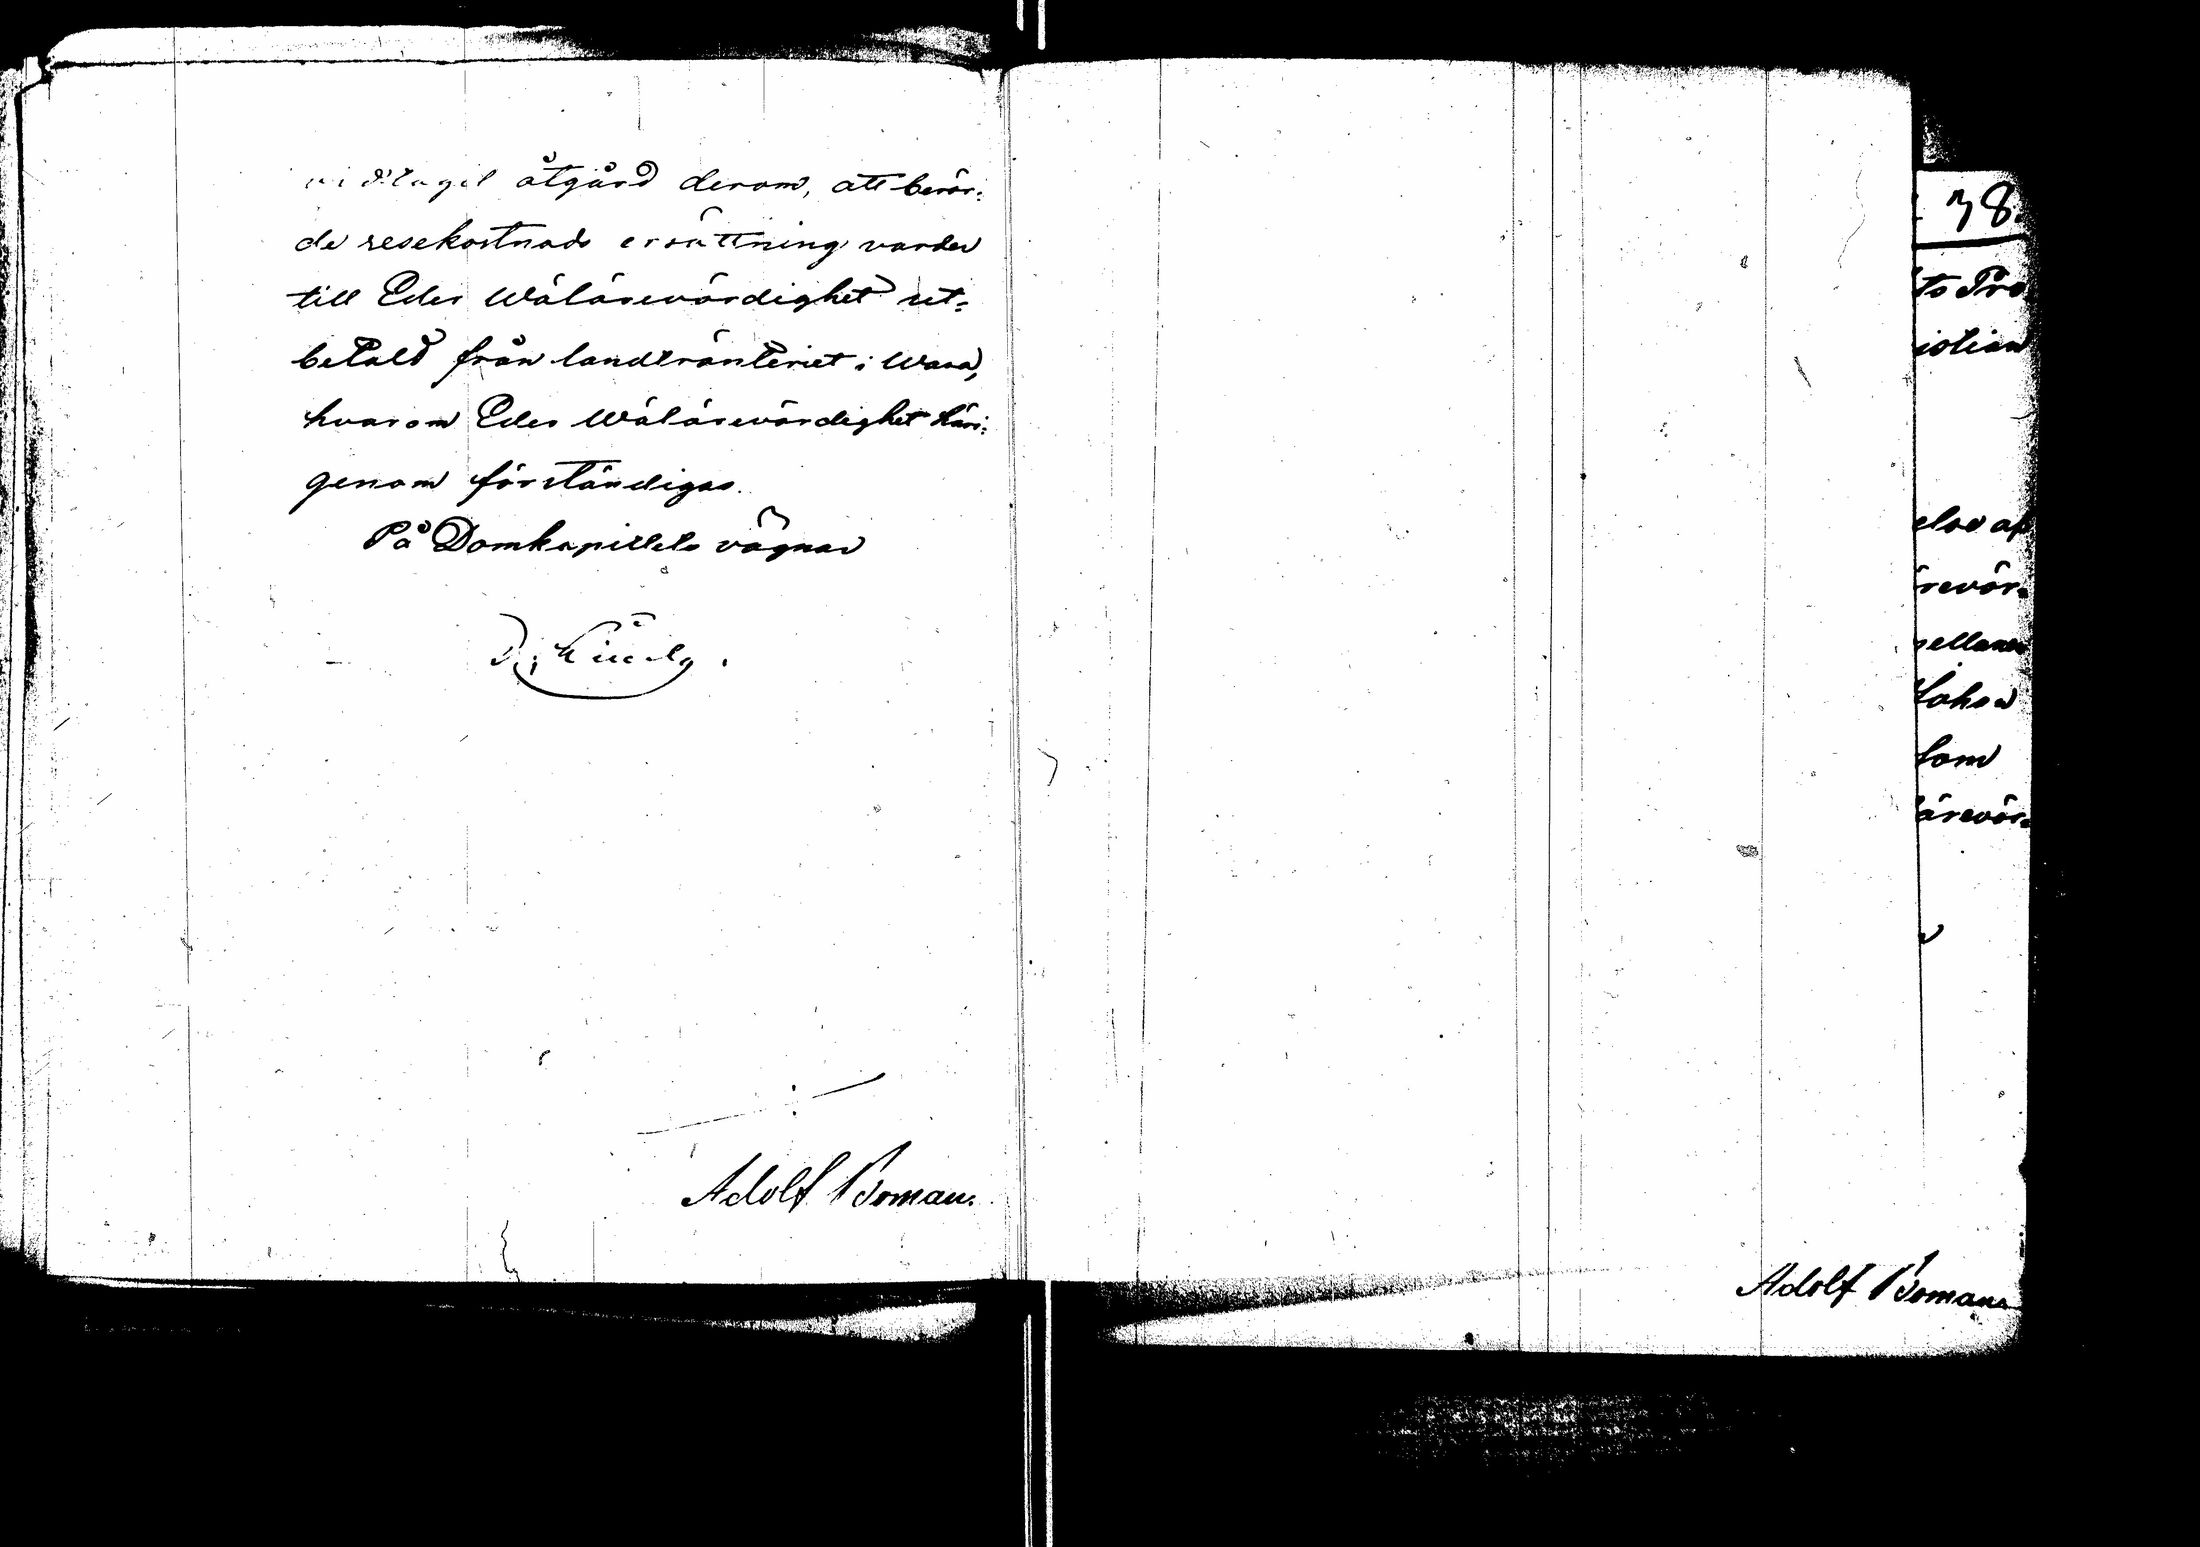 vidtagit åtgärd derom, att berör=
de resekostnads ersättning varder
till Eder Wälärevördighet ut=
betald från landtränteriet i Wasa,
hvarom Eder Wälärevördighet häri=
genom förständigas.
På Domkapitlets vägnar
Adolf Boman.
78.
ts Pro
istian
else af
revör=
pellans
ärevör=
Adolf Boman.